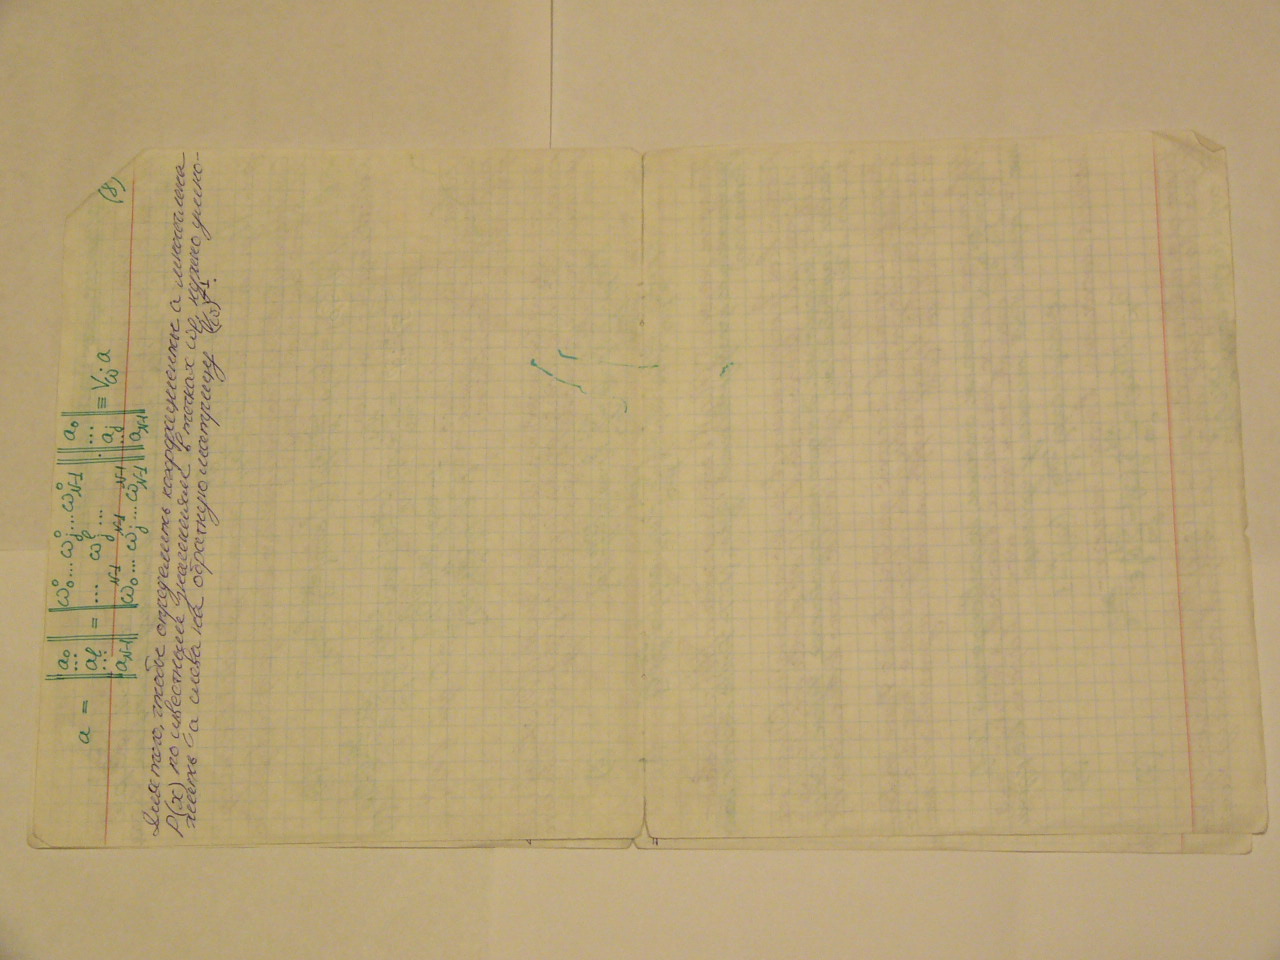 a = ‖a₀ ... aₗ ... a_N-1‖ = ‖ω₀⁰ ... ωⱼ⁰ ... ω⁰_N-1 ... ωⱼˡ ... ω₀^N-1 ... ωⱼ^N-1 ... ω_N-1^N-1‖ · ‖a₀ ... aⱼ ... a_N-1‖ ≡ V_ω a (8)
Для того, чтобы определить коэффициенты a многочлена
P(x) по известным значениям в точках ωⱼ, нужно умно-
жить a слева на обратную матрицу